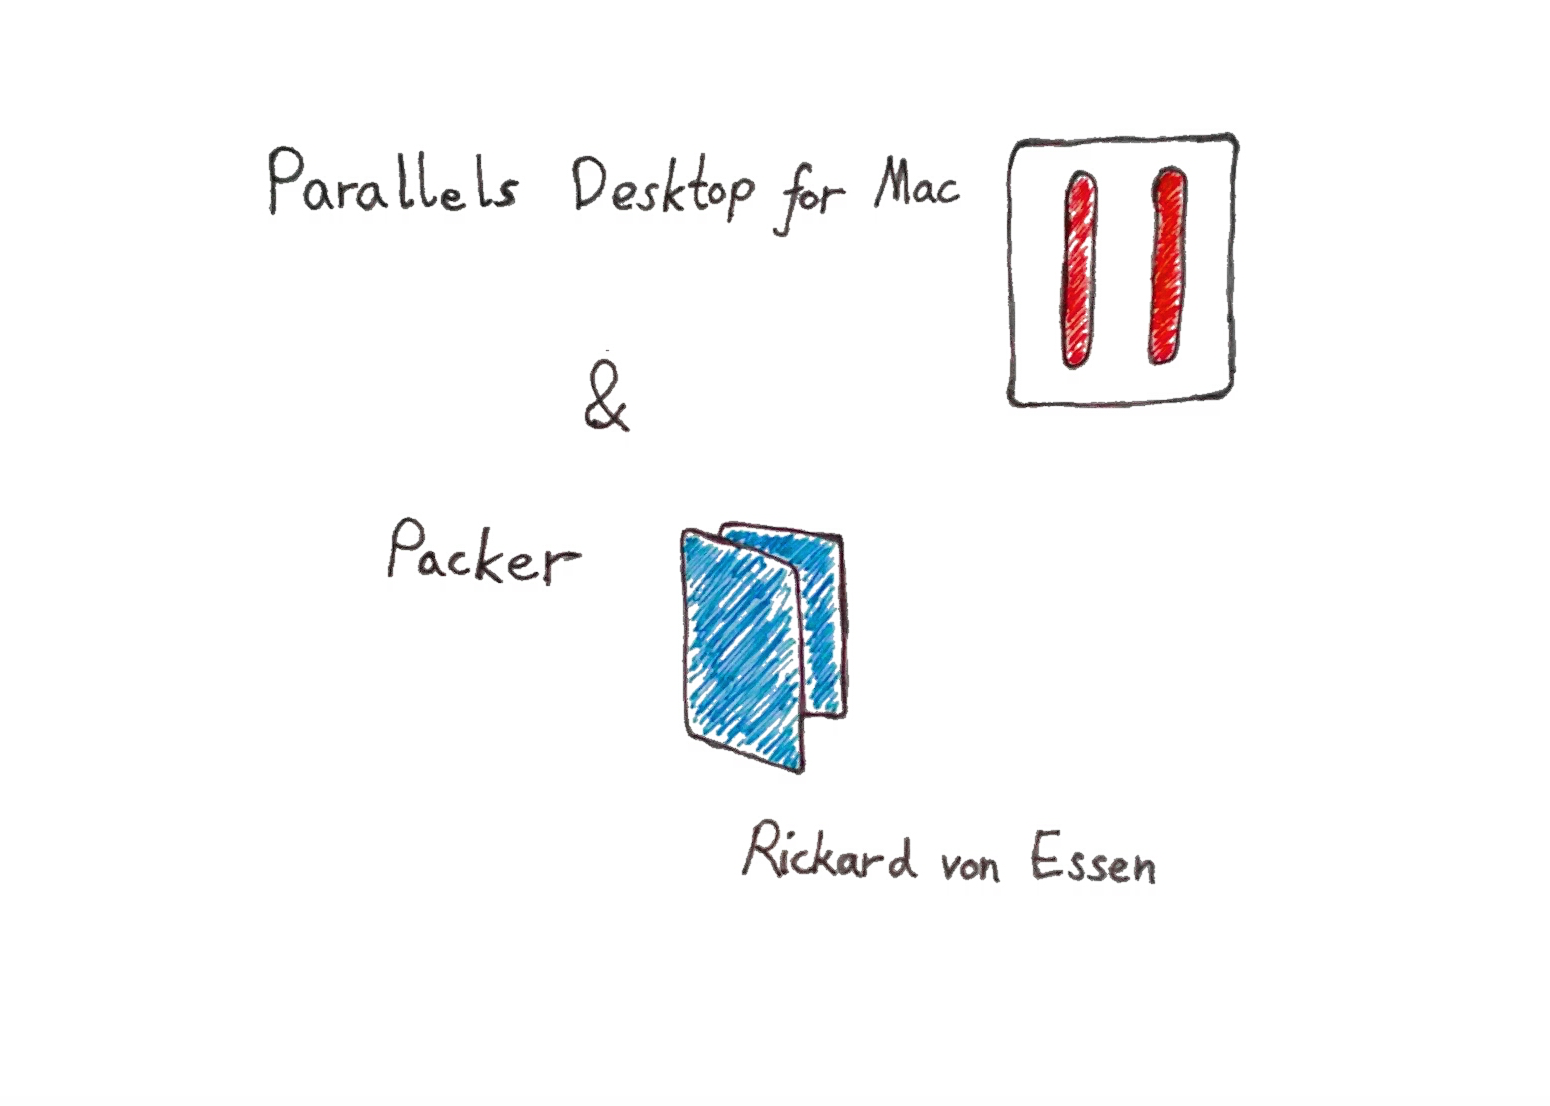 Parallels Desktop for Mac
&
Packer
Rickard von Essen